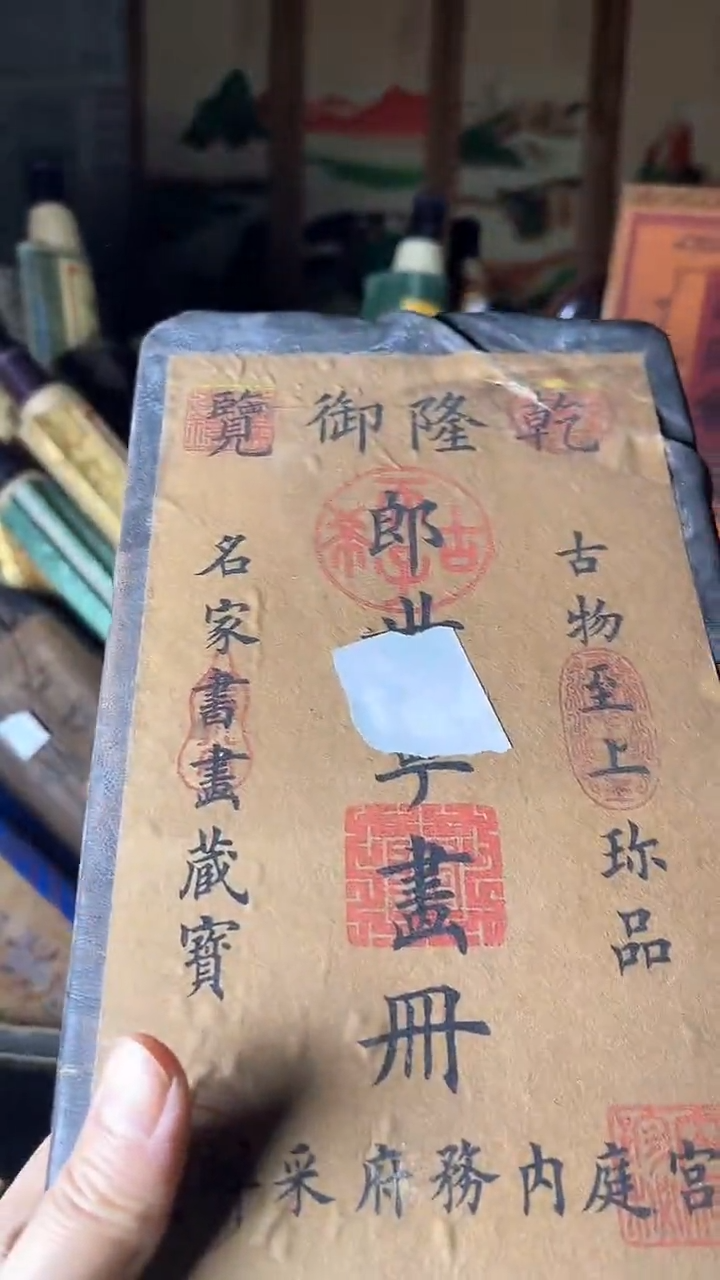 乾隆御覽
古物至上珍品
郎
畫冊
名家書畫藏寶
宮庭內務府采